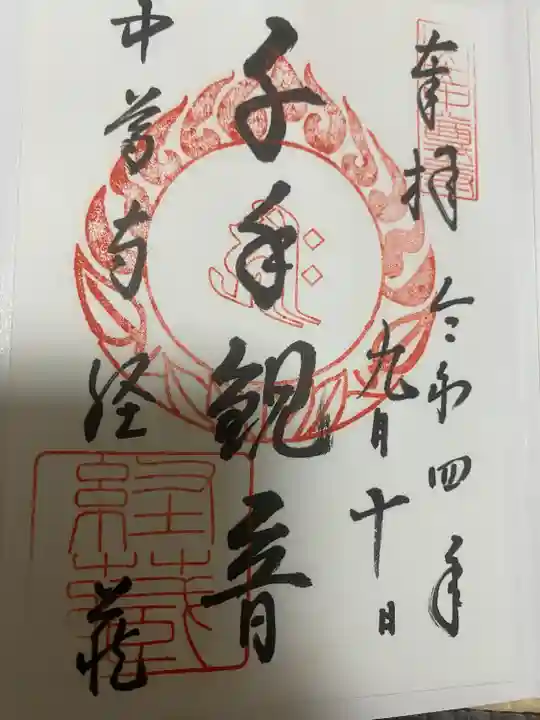 奉拝
令和四年
九月十日
千手観音
中尊寺経蔵
経蔵